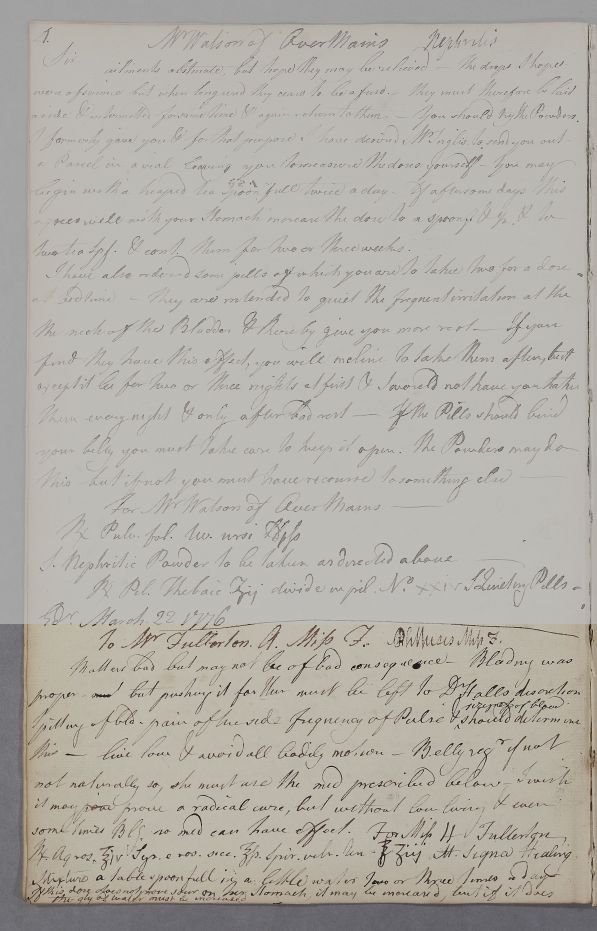 1.
Mr Watson of Over Mains Nephritis
Sir
ailments obstinate, but hope they may be relieved — the drops I hope
were of service but when long used they cease to be of used — they must therefore be laid
aside & intermitted for some time & again return to them. — You should try the Powders
I formerly gave you & for that purpose I have desired Mr Inglis to send you out
a Parcel in a vial leaving you to measure the doses yourself — You may
begin with a heaped tea spoon full twice a day. If after some days this
agrees well with your Stomach increase the dose to a spoonf. & ½ & to
two tea spf. & cont. them for two or three weeks.
I have also ordered some pills of which you are to take two for a dose
at bedtime — they are intended to quiet the frequent irritation at the
the neck of the Bladder & thereby give you more rest — If you
find they have this effect, you will incline to take them after, but
except it be for two or three nights at first I would not have you take
them every night & only after bad rest — If the Pills should bind
your belly you must take care to keep it open. The Powders may do
this but if not you must have recourse to something else —
For Mr Watson of Over Mains —
℞ Pulv. fol. uv. ursi
S. Nephritic Powder to be taken as directed above —
℞ Pil. Thebaic ʒij divide in pil. No. xxiv S. Quieting Pills
Edr. March 22 1776
To Mr Fullerton. A. Miss F. Phthisis Miss F.
Matters bad but may not be of bad consequence — Bleeding was
proper but pushing it further must be left to Dr Halls discretion
spitting of bld. pain of the side frequency of Pulse & sizeness of blood should determine
this — live low & avoid all bodily motion — Belly regr. if not
not naturally so, she must use the med prescribed below — I wish
it may prove a radical cure, but without low living & even
some times Bl: no med can have effect. For Miss H Fullerton
℞ Aq ros. ℥iv Syr. e ros. sicc. ℥ss. Spir. vitr. ten. ʒiij M. Signa Healing
Mixture a tablespoonfull in a little water two or three times a day
If this dose does not prove sour on her Stomach, it may be increased, but if it does
the qty of water must be increased